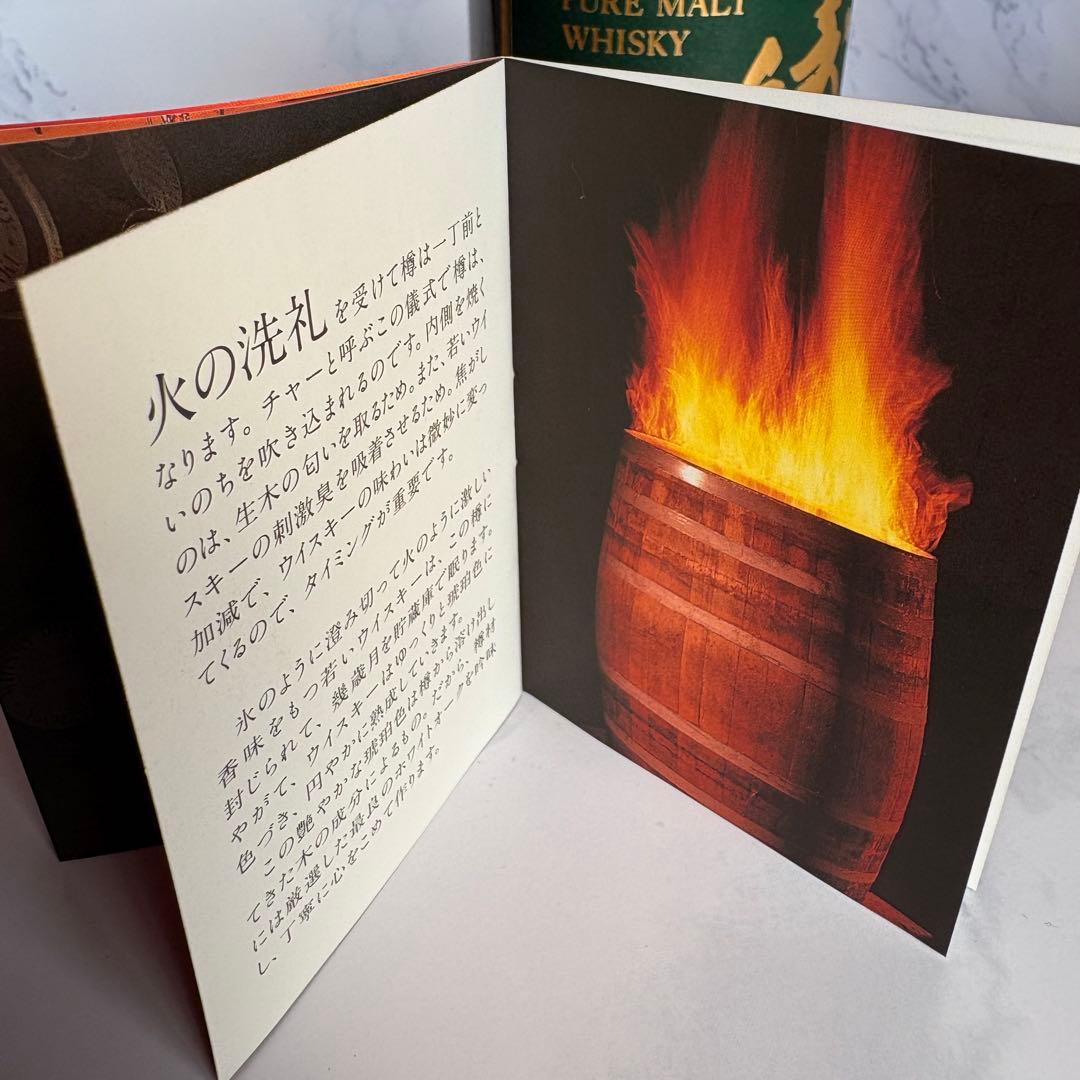 PURE MALT
WHISKY
火の洗礼を受けて樽は一丁前と
なります。チャーと呼ぶこの儀式で樽は、
いのちを吹き込まれるのです。内側を焼く
のは、生木の匂いを取るため。また、若いウイ
スキーの刺激臭を吸着させるため。焦がし
加減で、ウイスキーの味わいは微妙に変っ
てくるので、タイミングが重要です。
氷のように澄み切って火のように激しい
香味をもつ若いウイスキーは、この樽に
封じられて、幾歳月を貯蔵庫で眠ります。
やがて、ウイスキーはゆっくりと琥珀色に
色づき、円やかに熟成していきます。
この艶やかな琥珀色は樽から溶け出し
てきた木の成分によるもの。だから、樽材
には厳選した最良のホワイトオークを吟味
し、丁寧に心をこめて作ります。